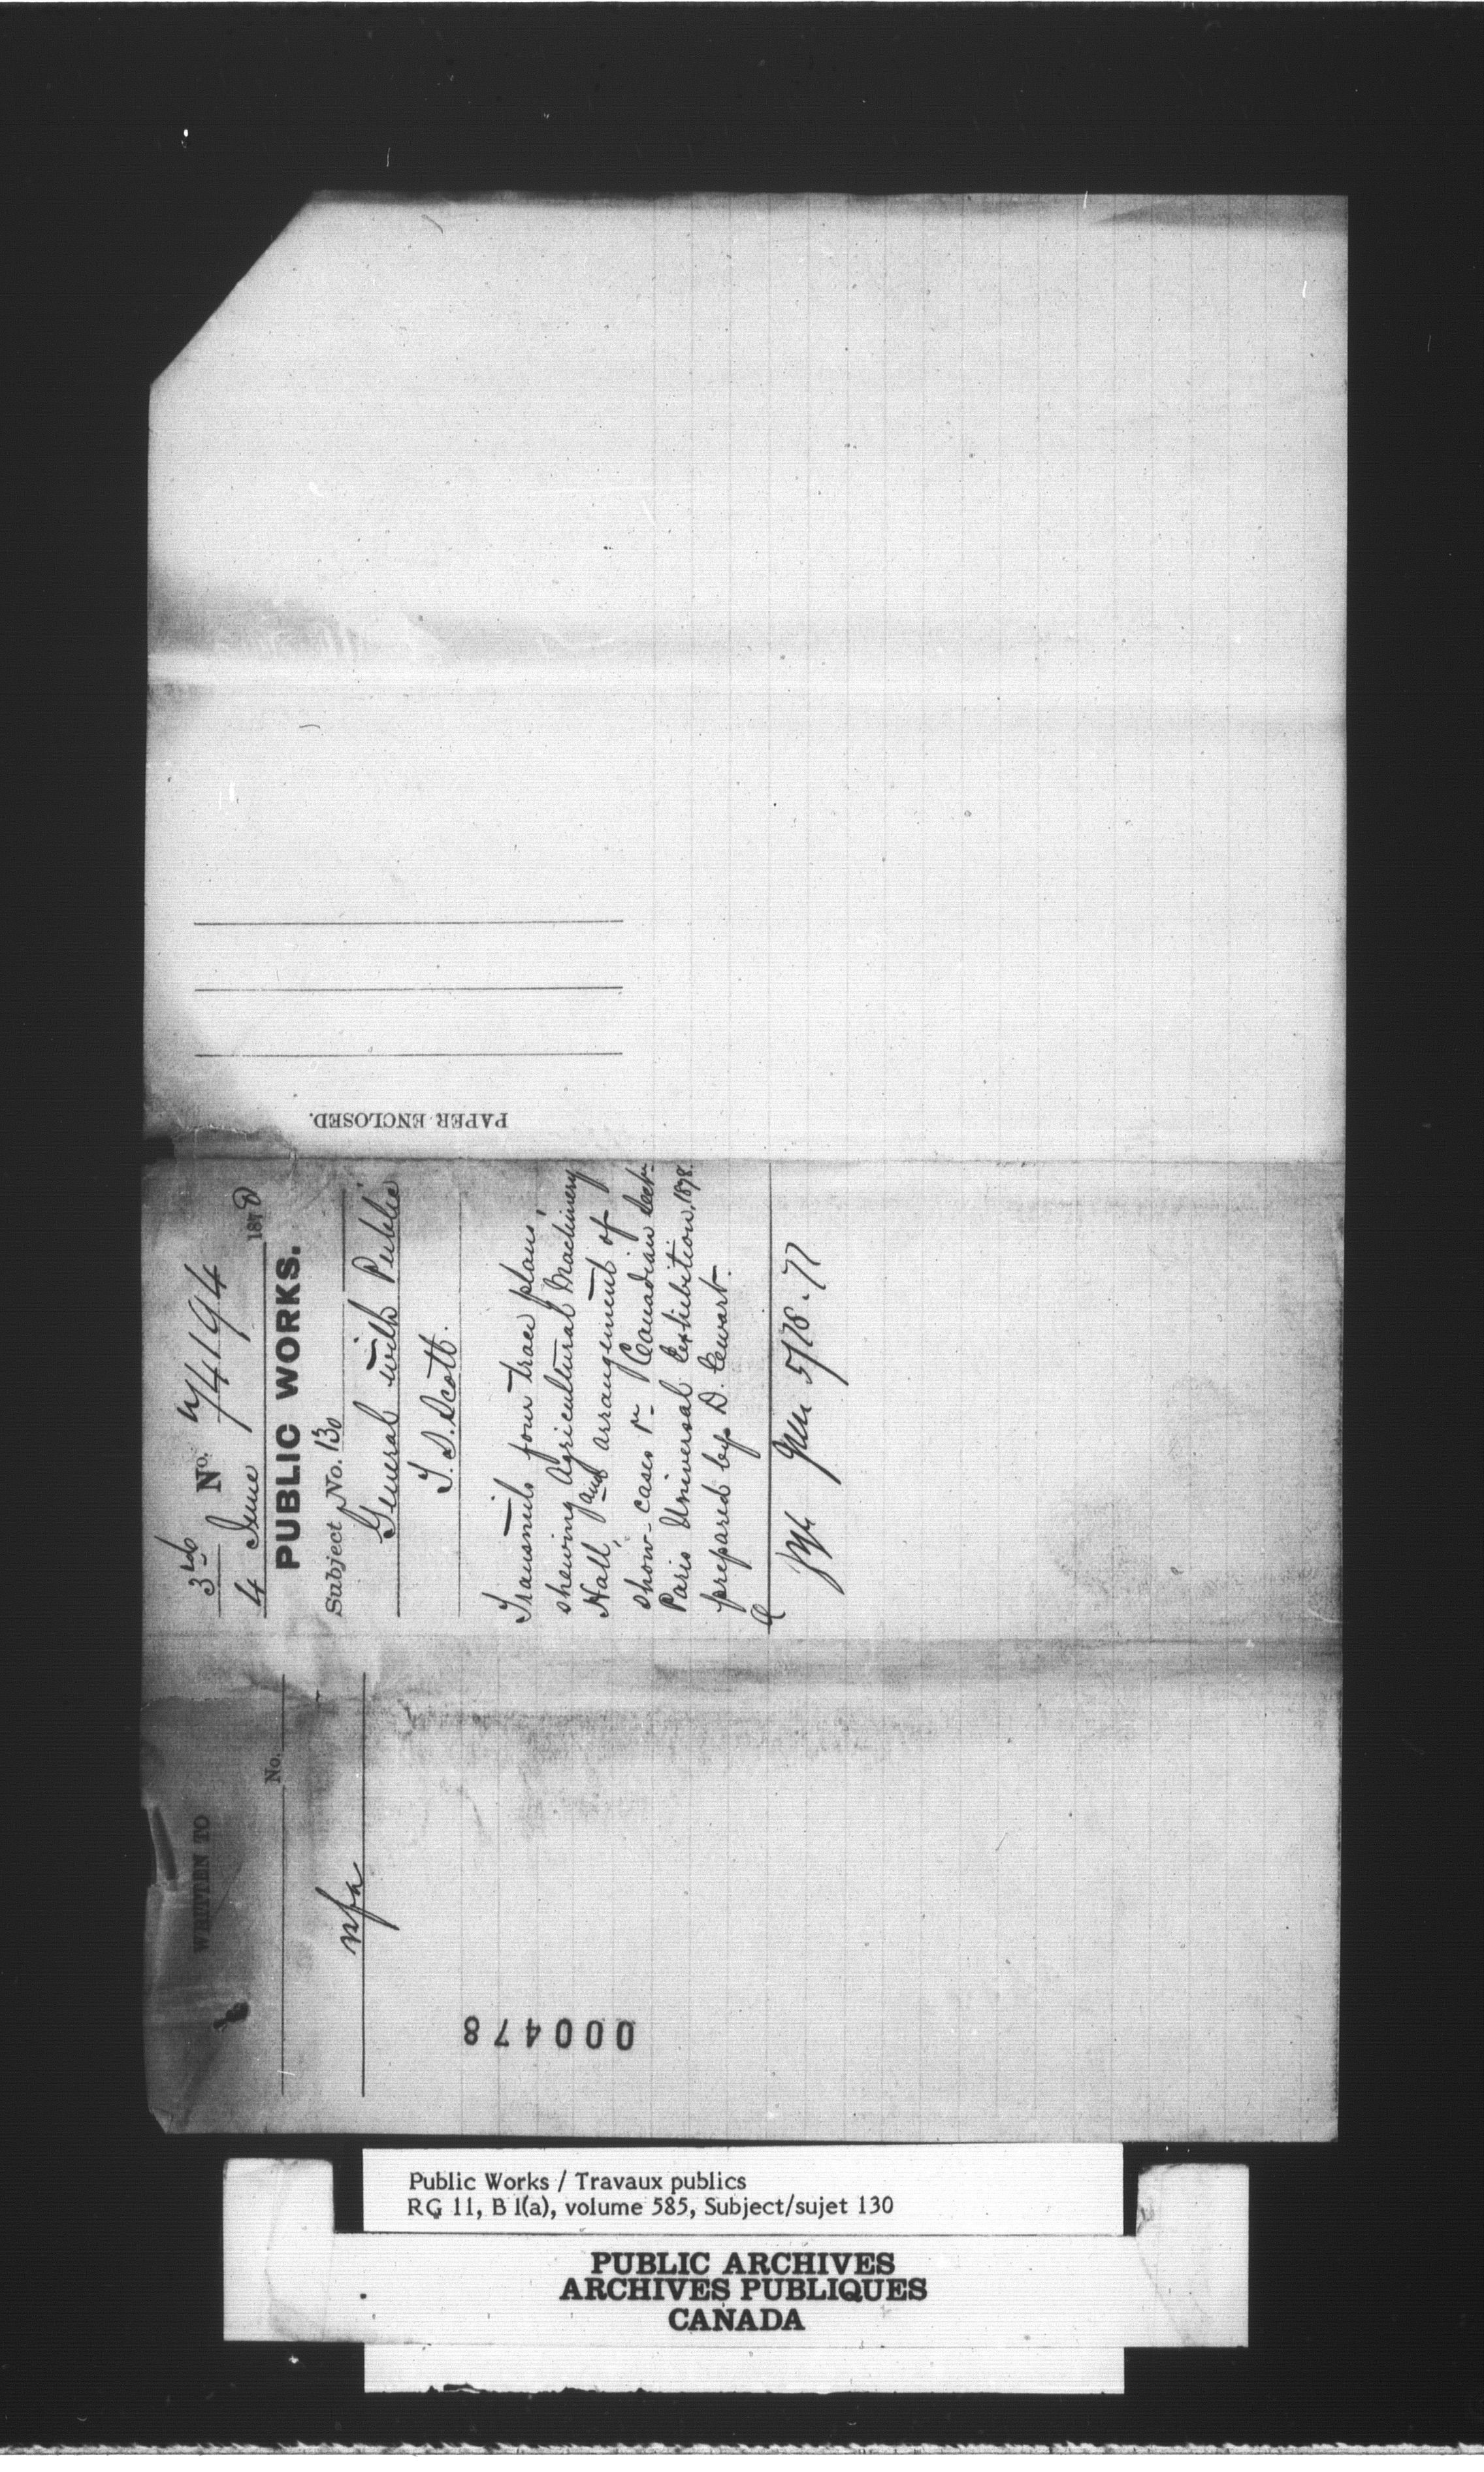 PAPER ENCLOSED.
3rd No. 74194
4 June 1878
PUBLIC WORKS.
Subject No. 130
General with Public
T. S. Scott.
Transmits four trace plans,
shewing Agricultural Machinery
Hall, and arrangement of
show-cases &c - Canadian Sectn
Paris Universal Exhibition, 1878.
prepared by D. Ewart.
5/78.77
WRITTEN TO
No.
nfa
000478
Public Works / Travaux publics
RG 11, B 1(a), volume 585, Subject/sujet 130
PUBLIC ARCHIVES
ARCHIVES PUBLIQUES
CANADA